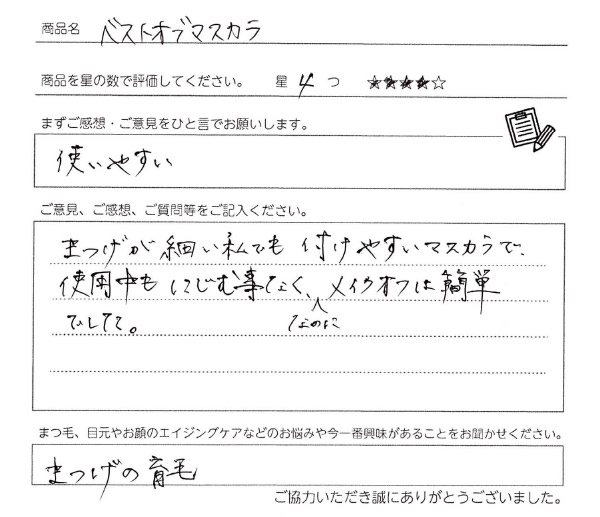 商品名 ベストオブマスカラ
商品を星の数で評価してください。 星 4 つ ★★★★☆
まずご感想・ご意見をひと言でお願いします。
使いやすい
ご意見、ご感想、ご質問等をご記入ください。
まつげが細い私でも付けやすいマスカラで、
使用中もにじむ事なく、なのにメイクオフは簡単
でした。
まつ毛、目元やお顔のエイジングケアなどのお悩みや今一番興味があることをお聞かせください。
まつげの育毛
ご協力いただき誠にありがとうございました。